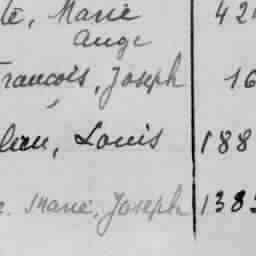 te, Marie 42
Ange
François, Joseph 16
Louis 188
Marie, Joseph 138